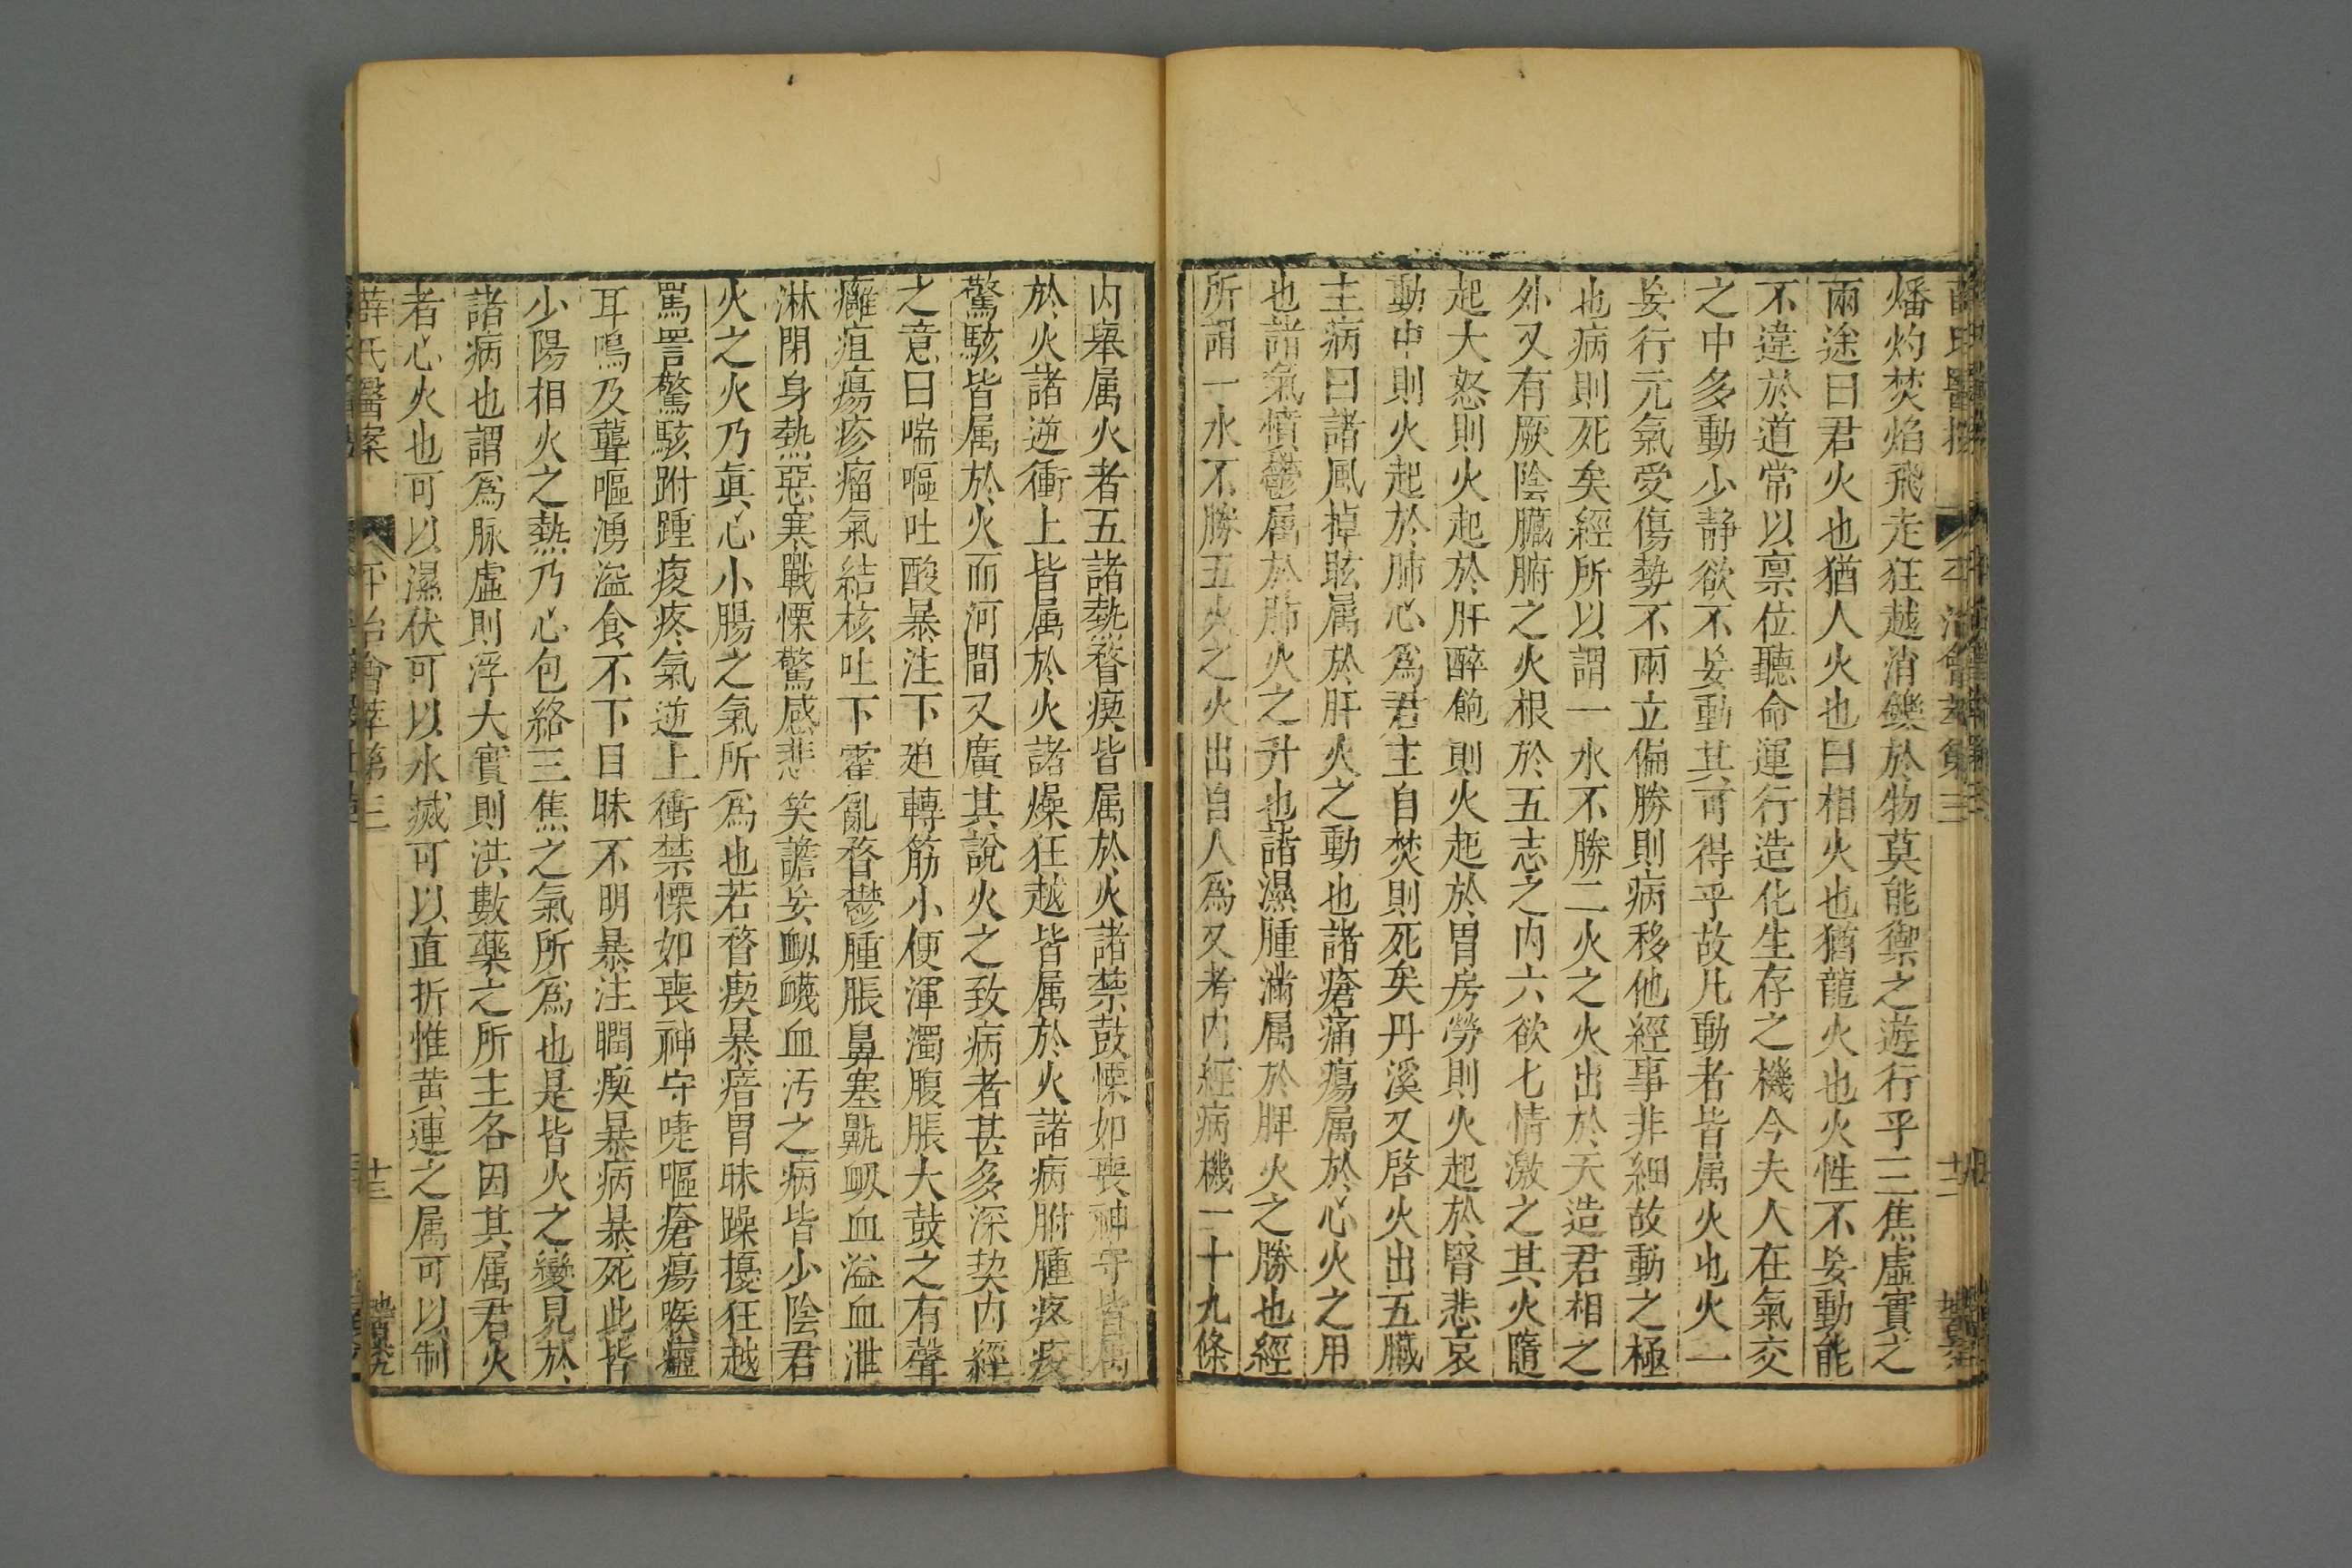 燔灼焚焰飛走狂越消鑠於物莫能禦之遊行乎三焦虛實之
兩途曰君火也猶人火也曰相火也猶龍火也火性不妄動能
不違於道常以禀位聽命運行造化生存之機今夫人在氣交
之中多動少静欲不妄動其可得乎故凡動者皆属火也火一
妄行元氣受傷勢不兩立偏勝則病移他經事非細故動之極
也病則死矣經所以謂一水不勝二火之火出於天造君相之
外又有厥陰臟腑之火根於五志之内六欲七情激之其火隨
起大怒則火起於肝醉飽則火起於胃房勞則火起於腎悲哀
動中則火起於肺心爲君主自焚則死矣丹溪又啓火出五臟
主病曰諸風掉眩属於肝火之動也諸瘡痛瘍属於心火之用
也諸氣憤鬱属於肺火之升也諸濕腫滿属於脾火之勝也經
所謂一水不勝五火之火出自人爲又考内經病機一十九條
内舉属火者五諸熱瞀瘈皆属於火諸禁鼓慄如喪神守皆属
於火諸逆衝上皆属於火諸燥狂越皆属於火諸病胕腫疼痠
驚駭皆属於火而河間又廣其說火之致病者甚多深契内經
之意曰喘嘔吐酸暴注下廹轉筋小便渾濁腹脹大鼓之有聲
癰疽瘍疹瘤氣結核吐下霍亂瞀鬱腫脹鼻塞鼽衂血溢血泄
淋閉身熱惡寒戰慄驚感悲笑譫妄衂衊血汚之病皆少陰君
火之火乃眞心小腸之氣所爲也若瞀瘈暴瘖冐昧躁擾狂越
罵詈驚駭胕踵痠疼氣逆上衝禁慄如喪神守嚏嘔瘡瘍喉痺
耳鳴及聾嘔湧溢食不下目昧不明暴注瞤瘈暴病暴死此皆
少陽相火之熱乃心包絡三焦之氣所爲也是皆火之變見於
諸病也謂爲脉虛則浮大實則洪數藥之所主各因其属君火
者心火也可以濕伏可以水滅可以直折惟黄連之属可以制
薛氏醫案 平治會萃第三 十三